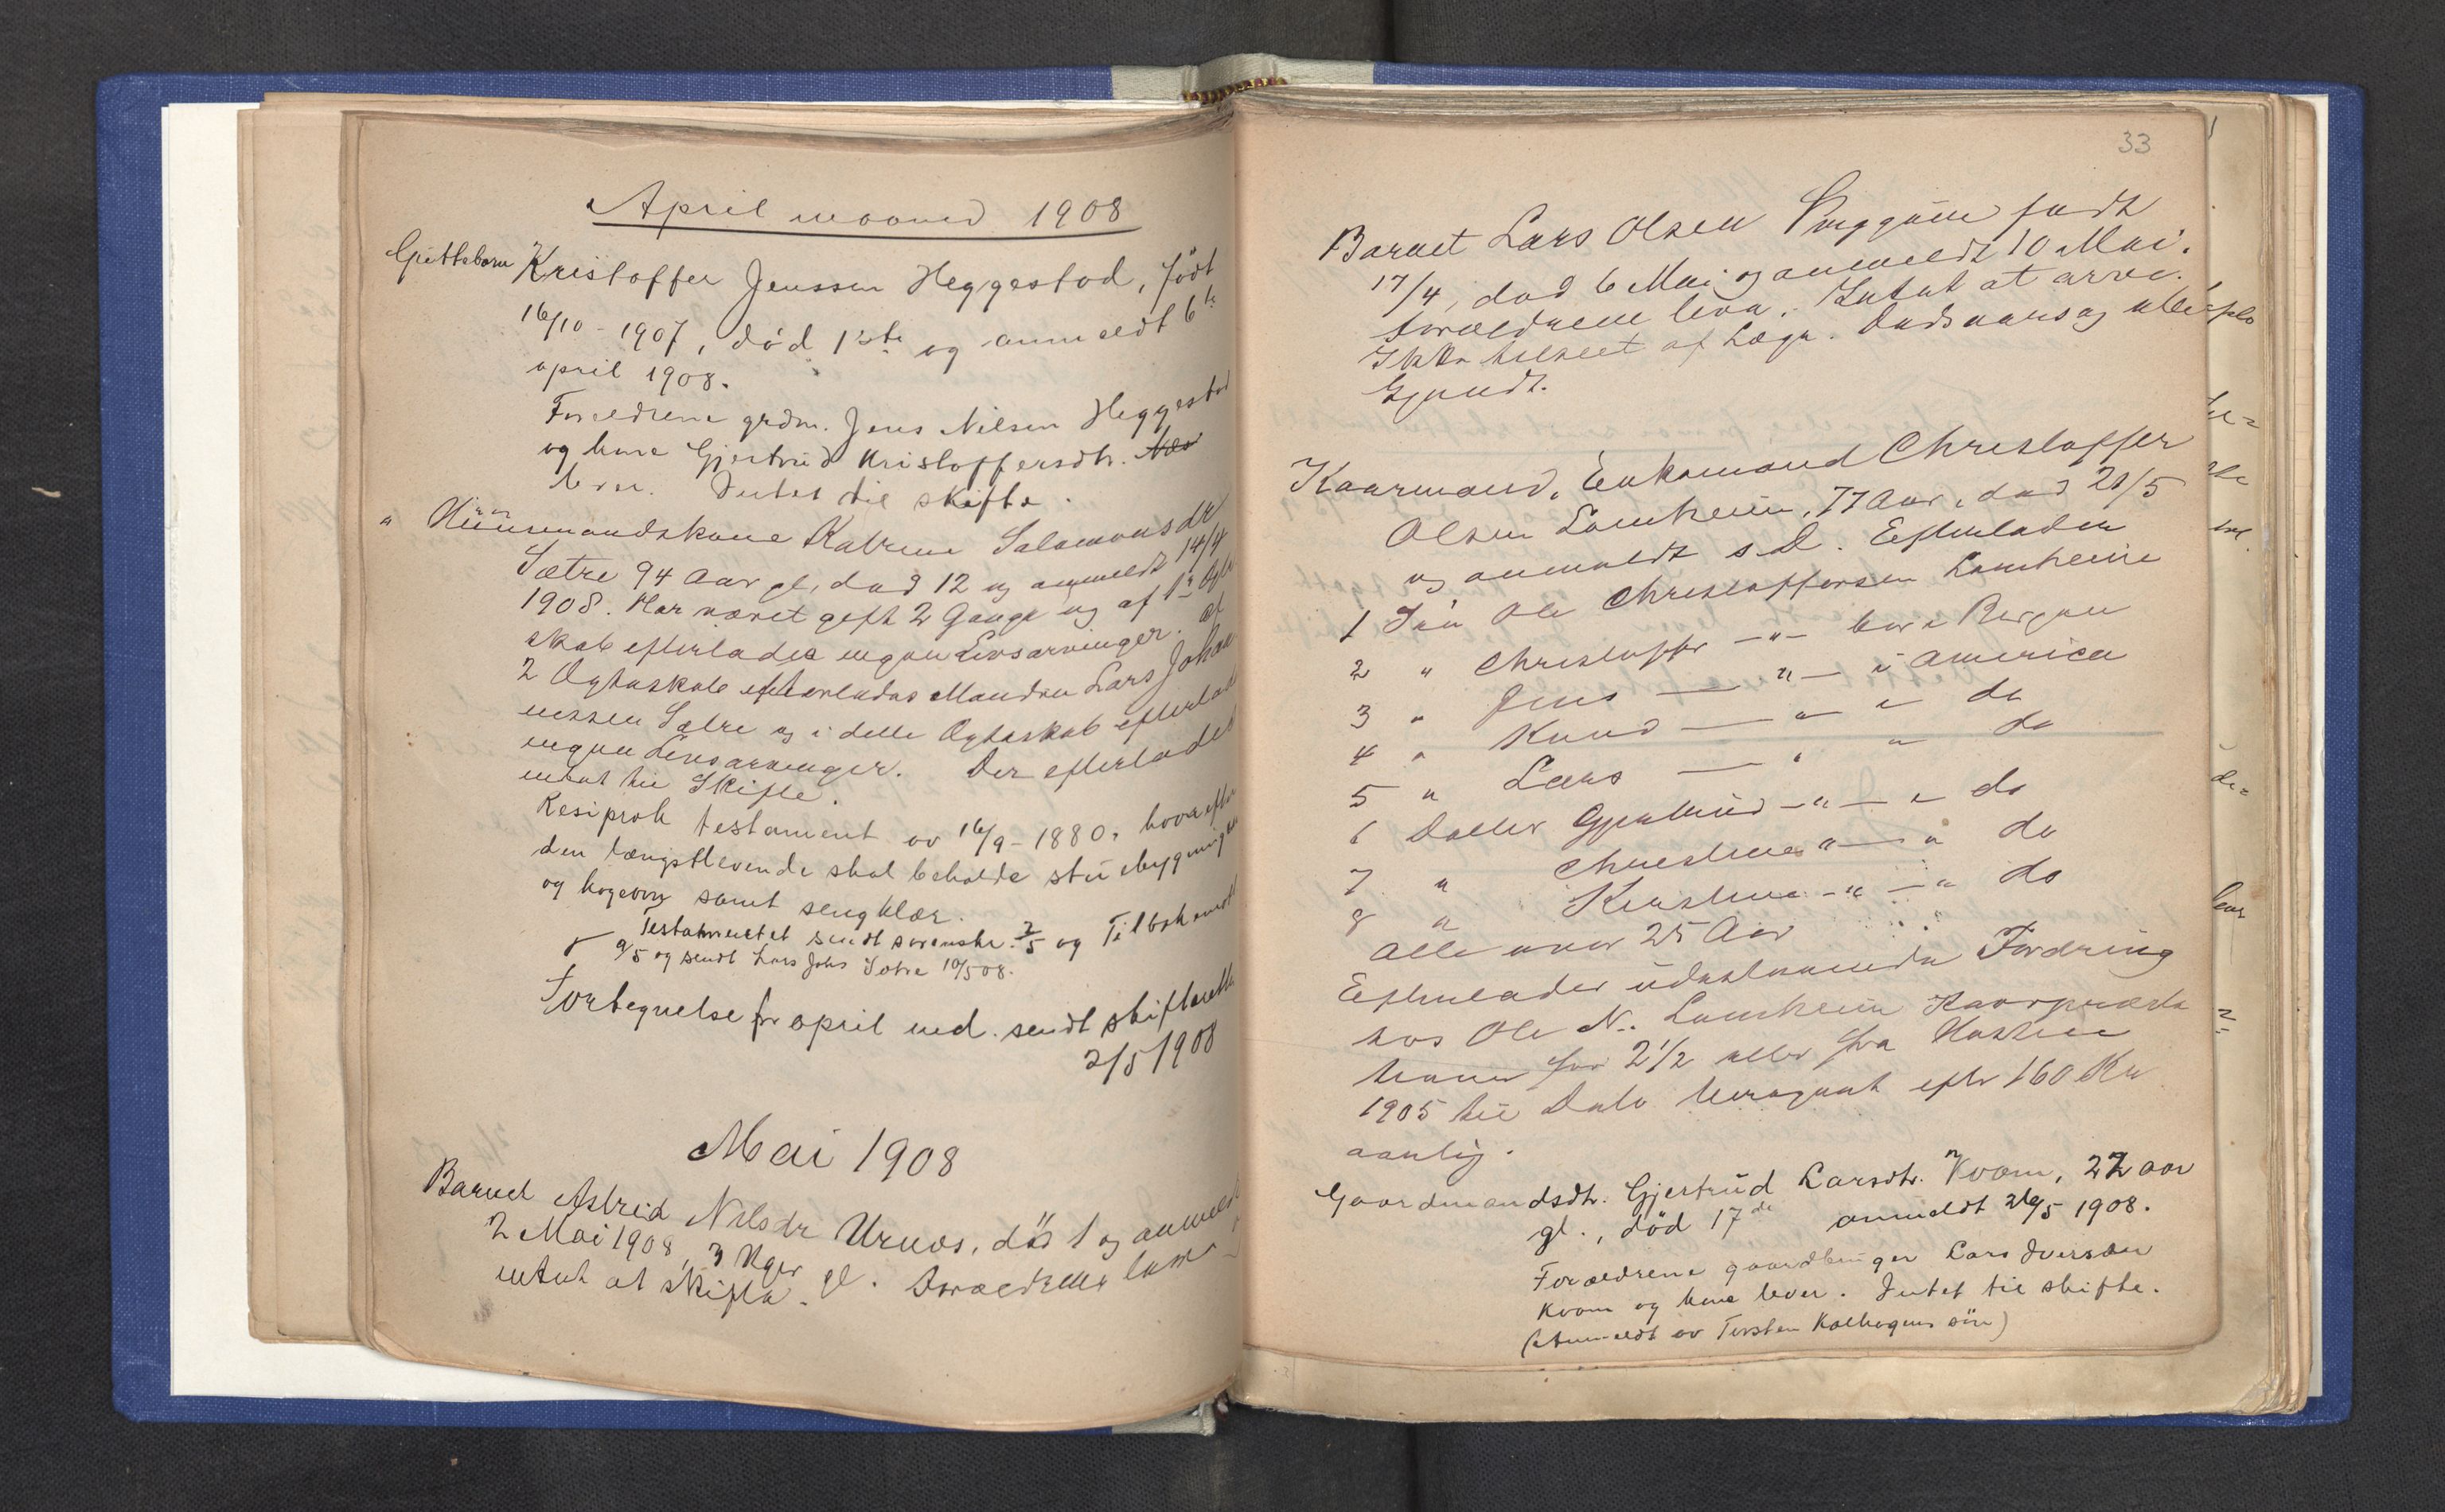 April maaned 1908
Gifteborn Kristoffer Jenssen Heggestad, født
16/10 - 1907, død 1ste og anmeldt 6te
april 1908.
Forældrene grdm. Jens Nilsen Heggestad
og kone Gjertrud Kristoffersdtr.
lever. Intet til skifte.
" Huusmandskone Katrine Salomonsdr
Sætre 94 Aar gl, død 12 og anmeldt 14/4
1908. Har været gift 2 Gange og af 1ste Ægte
skab efterlades ingen Livsarvinger. af
2 Ægteskab efterlades Manden Lars Johan
nessen Sætre og i dette Ægteskab efterlades
ingen Livsarvinger. Der efterlades
intet til Skifte.
Resiprok testament av 16/9 - 1880, hvorefter
den længstlevende skal beholde stuebygningen
og kogeovn samt sengklær.
Testamentet sendt sorenskr. 2/5 og Tilbakesendt
9/5 og sendt Lars Johs Sætre 10/5 08.
Fortegnelse for april md. sendt skifteretten
2/5 1908
Mai 1908
Barnet Astrid Nilsdr Urnes, død 1 og anmeldt
2 Mai 1908, 3 Uger gl. Forældrene leve
intet at skifte.
33
Barnet Lars Olsen født
17/4, død 6 Mai og anmeldt 10 Mai.
Forældrene leva. Intet at arve.
Ikke tilseet af Læge. Dødsaarsag
Kaarmand, Enkemand Christoffer
Olsen Lomheim, 77 Aar, død 21/5
og anmeldt s.D. Efterlader
1 Søn Ole Christoffersen Lomheim
2 " Christoffer —"— bor i Bergen
3 " Jens —"— i America
4 " Knud —"— " do
5 " Lars —"— " do
6 Datter Gjertrud —"— i do
7 " Christine —"— " do
8 " Kirstine —"— " do
Alle over 25 Aar
Efterlader udestaaende Fordring
hos Ole N. Lomheim Kaarpræsta
tioner for 2 1/2 eller fra Høsten
1905 til Dato beregnet efter 160 Kr
aarlig.
Gaardmandsdtr. Gjertrud Larsdtr. Kvam, 22 aar
gl., død 17de anmeldt 26/5 1908.
Forældrene gaardbruger Lars Iversen
Kvam og kone lever. Intet til skifte.
(Anmeldt av Torsten Kolhagens søn)